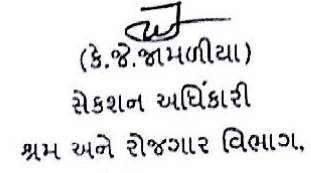 (કે.જે.જામળીયા)
સેકશન અધિકારી
શ્રમ અને રોજગાર વિભાગ.